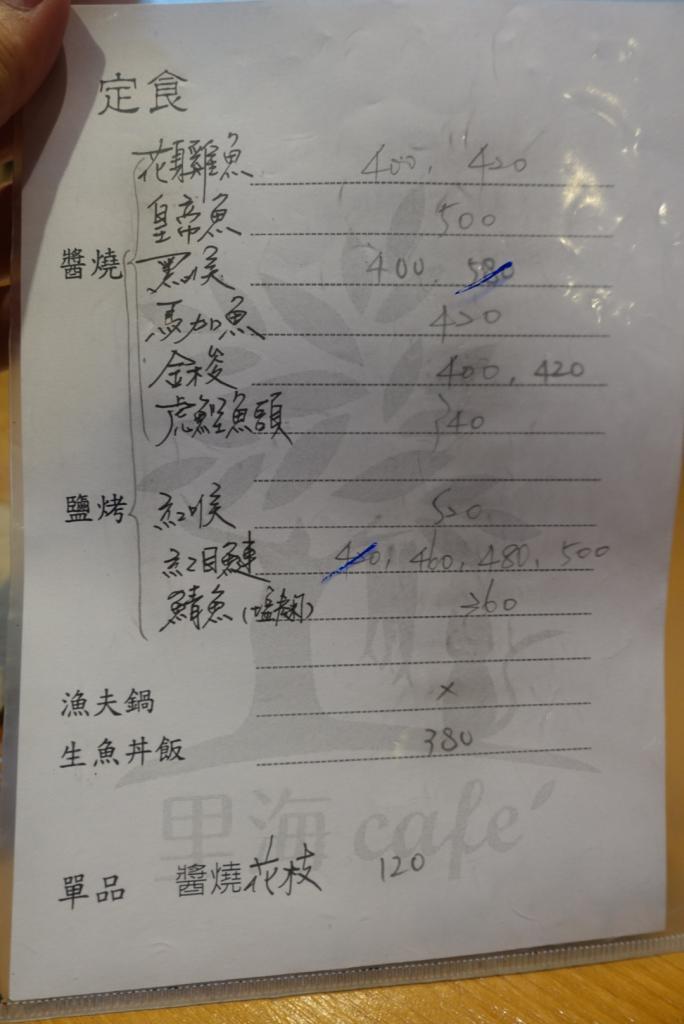 定食
花身雞魚 400, 420
皇帝魚 500
醬燒 黑喉 400, 580
馬加魚 420
金梭 400, 420
虎鰹魚頭 340
鹽烤 紅喉 520
紅目鰱 420, 460, 480, 500
鯖魚 260
漁夫鍋 ×
生魚丼飯 380
里海 café
單品 醬燒花枝 120